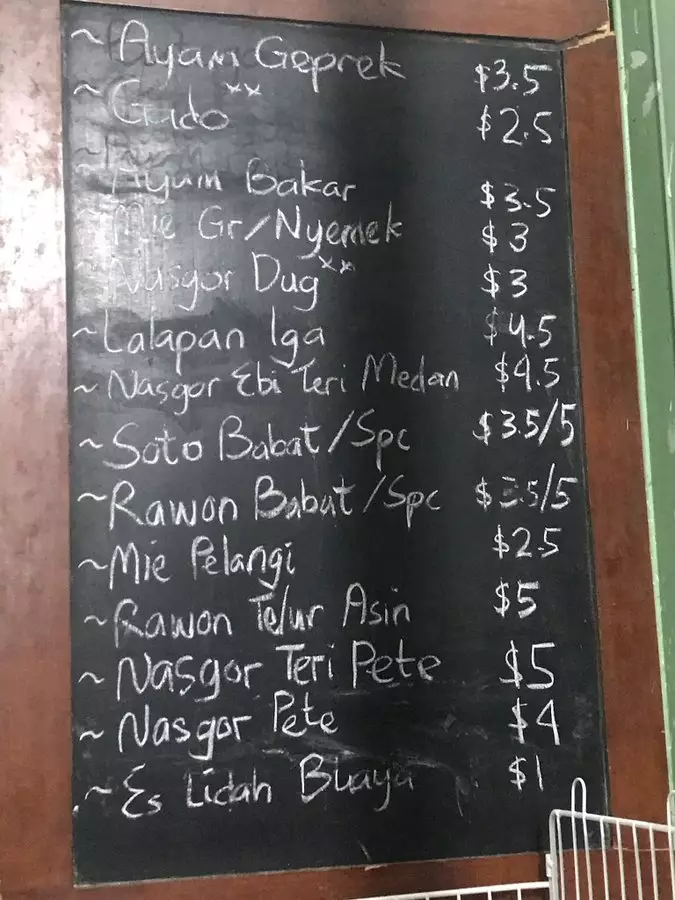 ~ Ayam Geprek $3.5
~ Gado xx $2.5
~ Ayam Bakar $3.5
~ Mie Gr/Nyemek $3
~ Nasgor Dug xx $3
~ Lalapan Iga $4.5
~ Nasgor Ebi Teri Medan $4.5
~ Soto Babat/Spc $3.5/5
~ Rawon Babat/Spc $3.5/5
~ Mie Pelangi $2.5
~ Rawon Telur Asin $5
~ Nasgor Teri Pete $5
~ Nasgor Pete $4
~ Es Lidah Buaya $1